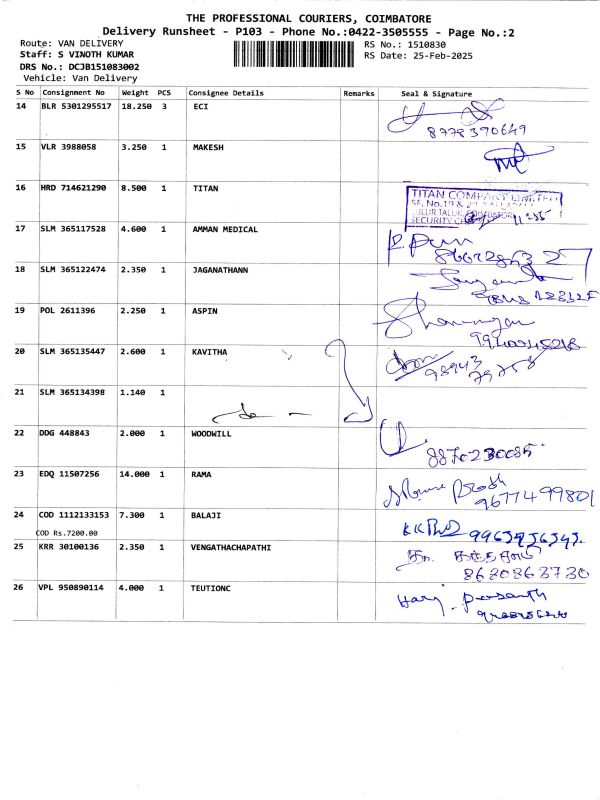 THE PROFESSIONAL COURIERS, COIMBATORE
Delivery Runsheet - P103 - Phone No.:0422-3505555 - Page No.:2
Route: VAN DELIVERY
RS No.: 1510830
Staff: S VINOTH KUMAR
RS Date: 25-Feb-2025
DRS No.: DCJB151083002
Vehicle: Van Delivery
S No Consignment No Weight PCS Consignee Details Remarks Seal & Signature
14 BLR 5301295517 18.250 3 ECI
8778370649
15 VLR 3988058 3.250 1 MAKESH
16 HRD 714621290 8.500 1 TITAN
TITAN COMPANY LIMITED
SULUR TALUK, COIMBATORE
SECURITY
17 SLM 365117528 4.600 1 AMMAN MEDICAL
18 SLM 365122474 2.350 1 JAGANATHANN
19 POL 2611396 2.250 1 ASPIN
20 SLM 365135447 2.600 1 KAVITHA
98943
21 SLM 365134398 1.140 1
22 DDG 448843 2.000 1 WOODWILL
23 EDQ 11507256 14.000 1 RAMA
9677499801
24 COD 1112133153 7.300 1 BALAJI
COD Rs.7200.00
25 KRR 30100136 2.350 1 VENGATHACHAPATHI
8620863730
26 VPL 950890114 4.000 1 TEUTIONC